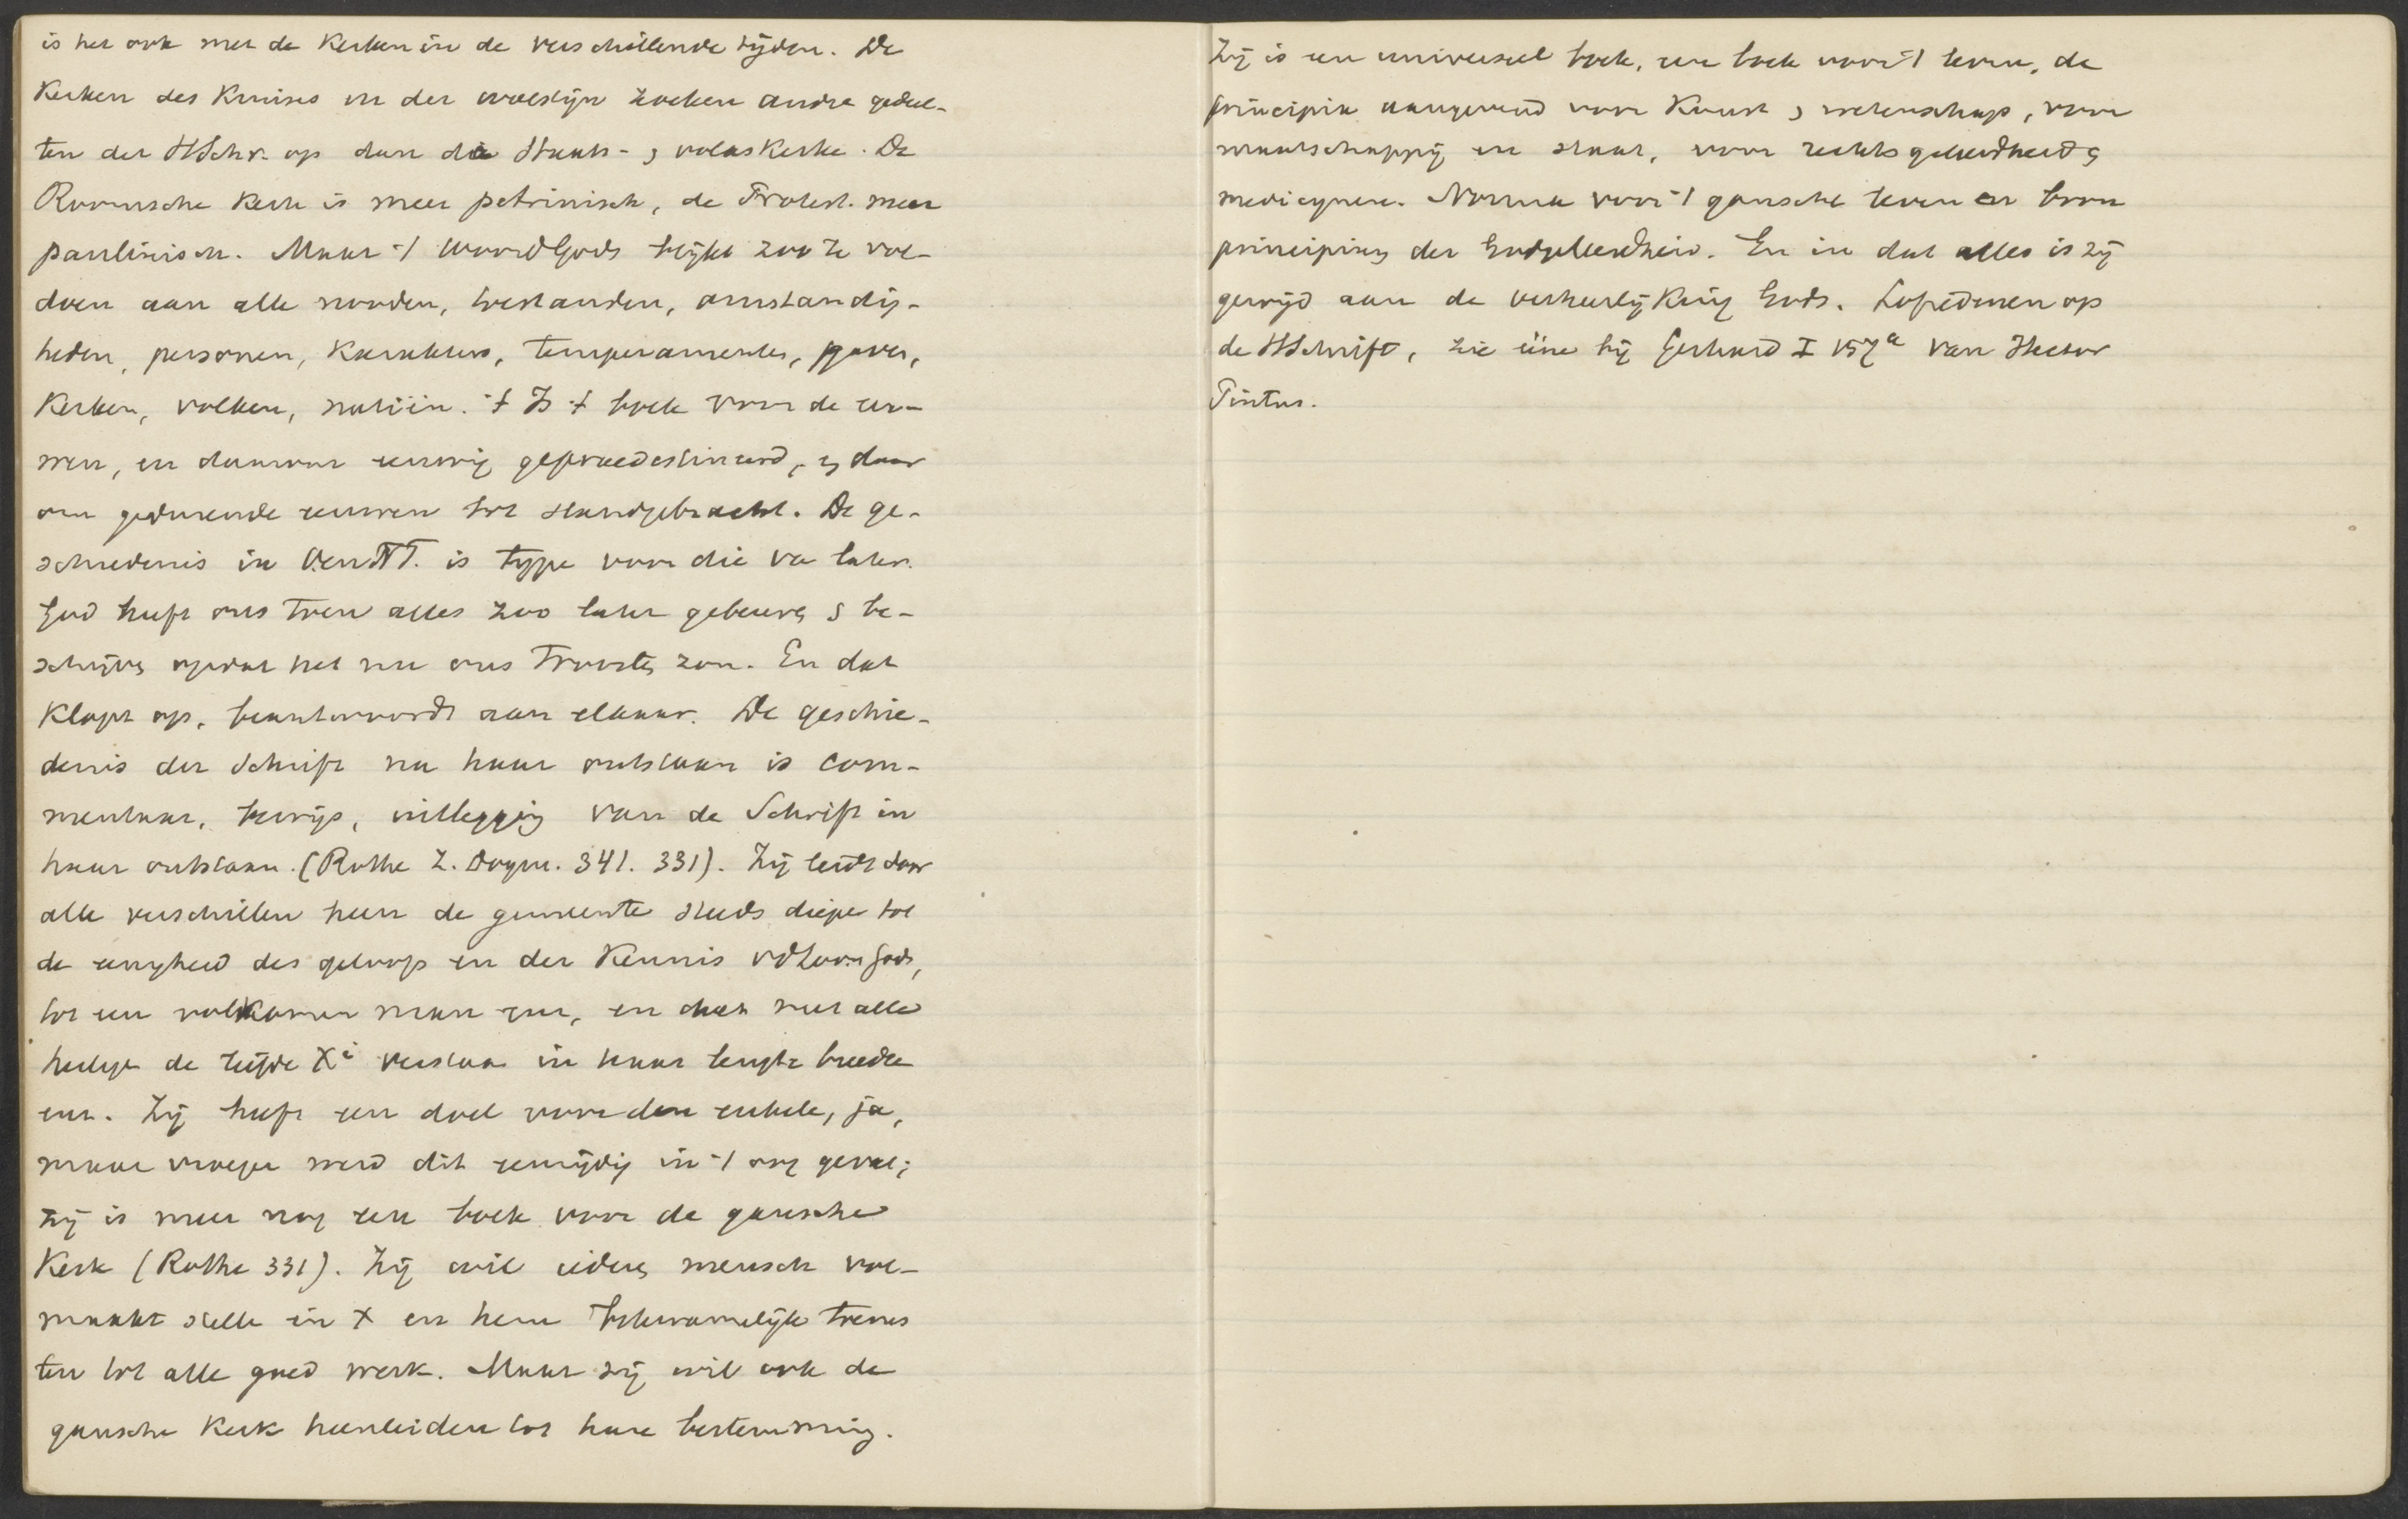 is het ook met de Kerken in de verschillende tijden. De
Kerken des Kruises in der woestijn zoeken andre gedeel-
ten der HSchr. op dan de Staats- & volkskerke. De
Roomsche Kerk is meer petrinisch, de Protest. meer
paulinisch. Maar 't Woord Gods blijkt zoo te vol-
doen aan alle nooden, toestanden, omstandig-
heden, personen, Karakters, temperamenten, gaven,
Kerken, volken, natiën. 't Is 't boek voor de eeu-
wen, en daarvoor eeuwig gepraedestineerd, & daar
om gedurende eeuwen tot stand gebracht. De ge-
schiedenis in O. en NT. is type voor die van later.
God heeft ons toen alles zoo laten gebeuren & be-
schrijven opdat het nu ons troosten zou. En dat
Klopt op, beantwoordt aan elkaar. De geschie-
denis der Schrift na haar ontstaan is com-
mentaar, bewijs, uitlegging van de Schrift in
haar ontstaan. (Rothe Z. Dogm. 341. 331). Zij leidt door
alle verschillen heen de gemeente steeds dieper tot
de eenigheid des geloofs en der Kennis vd Zoon Gods,
tot een volkomen man enz, en doet met alle
heiligen de liefde Xi verstaan in haar lengte breedte
enz. Zij heeft een doel voor den enkele, ja,
maar vroeger werd dit eenzijdig in 't oog gevat;
zij is meer nog een boek voor de gansche
Kerk (Rothe 331). Zij wil ieder mensch vol-
maakt stellen in X en hem bekwamelijk toerus
ten tot alle goed werk. Maar zij wil ook de
gansche Kerk heenleiden tot hare bestemming.
Zij is een universeel boek, een boek voor 't leven, de
principia aangevend voor Kunst & wetenschap, voor
maatschappij en staat, voor rechtsgeleerdheid &
medicijnen. Norma voor 't gansche leven en bron
principium der Godgeleerdheid. En in dat alles is zij
gewijd aan de verheerlijking Gods. Lofredenen op
de HSchrift, zie eene bij Gerhard I 157a van Hector
Pintus.